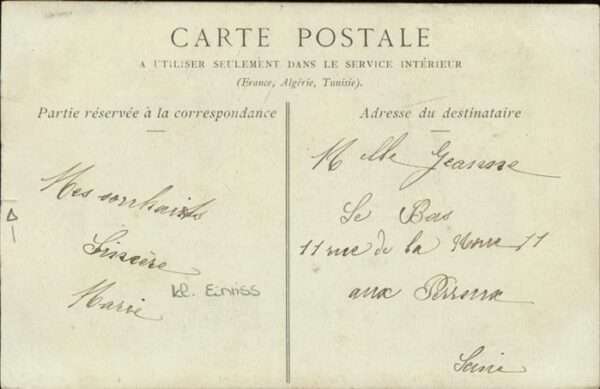 CARTE POSTALE
A UTILISER SEULEMENT DANS LE SERVICE INTÉRIEUR
(France, Algérie, Tunisie).
Partie réservée à la correspondance
Adresse du destinataire
Mes souhaits
Sincère
Marie
kl. Einriss
Melle Jeanne
Le Bas
11 rue de la 11
aux Perreux
Seine